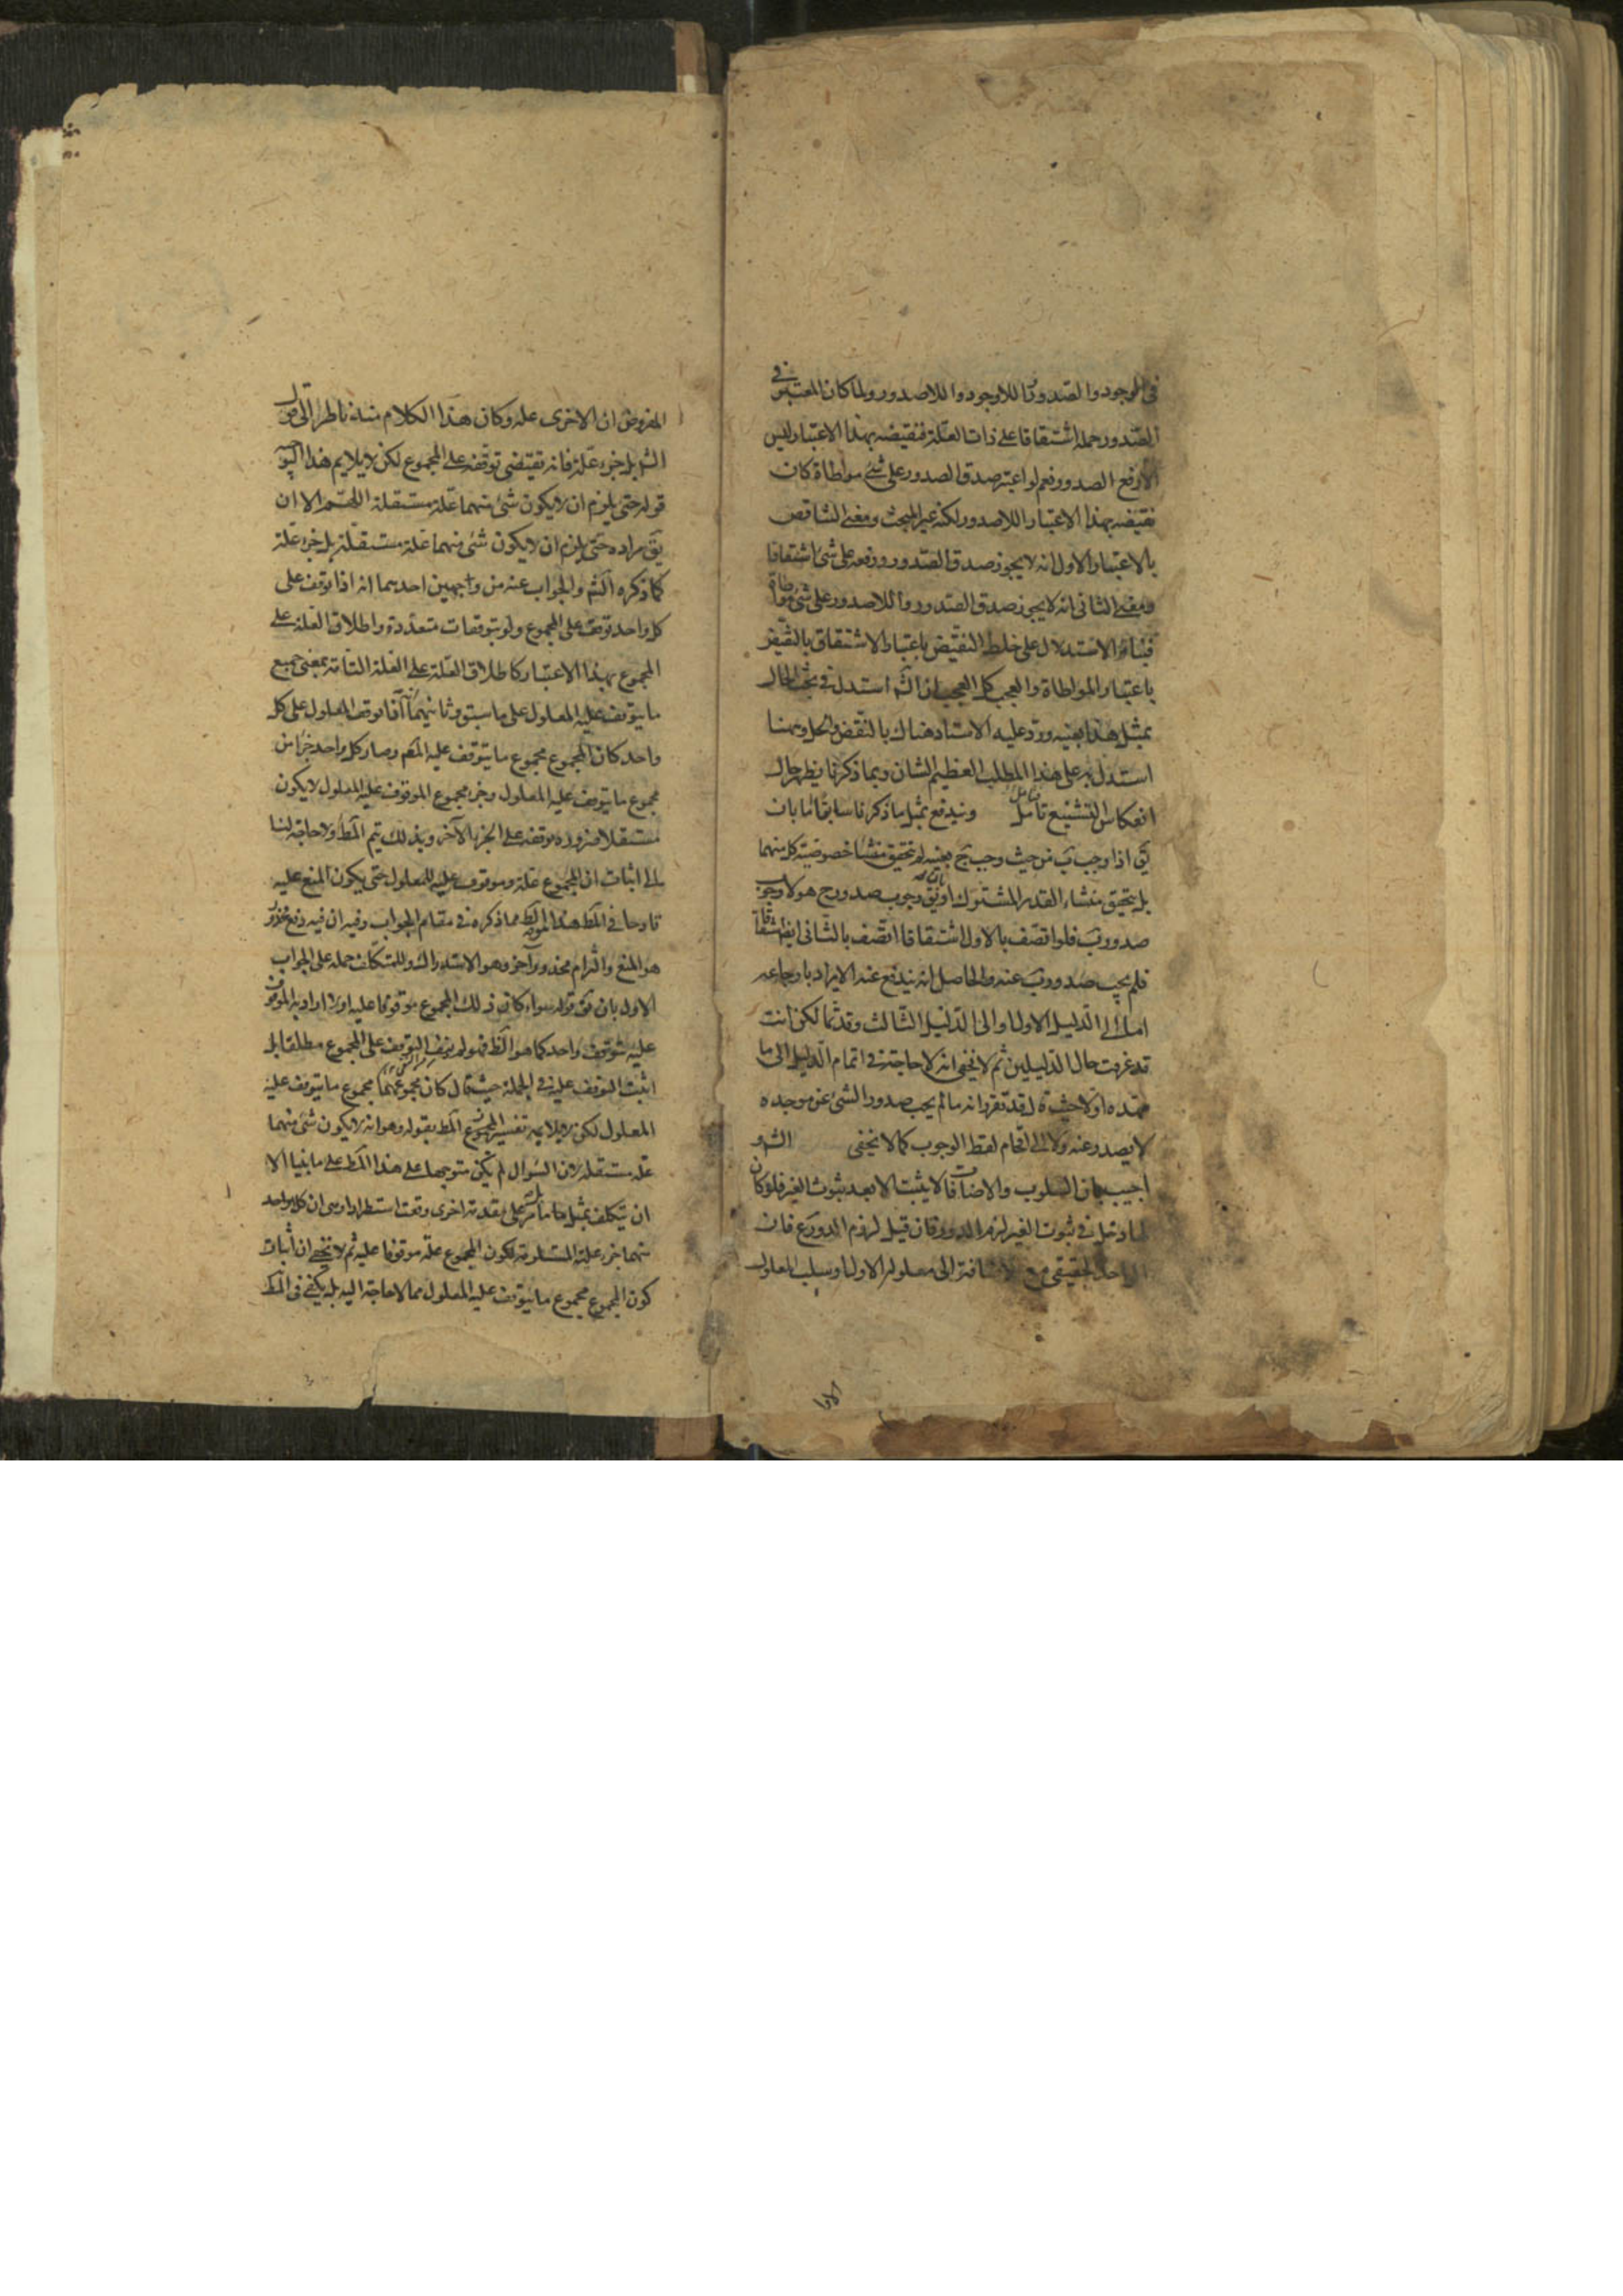 في الوجود والصدور واللاوجود واللاصدور ولما كان المعتبر في
الصدور حمله اشتقاقا على ذات العلة فنقيضه بهذا الاعتبار ليس
الا رفع الصدور نعم لو اعتبر صدق الصدور على شئ مواطاة كان
نقيضه بهذا الاعتبار اللاصدور لكنه غير المبحث ومعنى التناقض
بالاعتبار الاول انه لا يجوز صدق الصدور ورفعه على شئ اشتقاقا
ومعنى الثاني انه لا يجوز صدق الصدور واللاصدور على شئ مواطاة
فبناء الاستدلال على خلط النقيض باعتبار الاشتقاق بالنقيض
باعتبار المواطاة والعجب كل العجب ان الشه استدل في بحث الحال
بمثل هذا بعينه ورد عليه الاستاد هناك بالنقض والحل وههنا
استدل به على هذا المطلب العظيم الشان وبما ذكرنا يظهر حال
انعكاس التشنيع تامل ويندفع بمثل ما ذكرنا سابقا اما بان
يق اذا وجب ب من حيث وجب ج بعينه لم يتحقق منشا خصوصية كل منهما
بل يتحقق منشاء القدر المشترك او يق وجوب صدور ج هو لا وجوب
صدور ب فلو اتصف بالاول اشتقاقا اتصف بالثاني ايض اشتقاقا
فلم يجب صدور ب عنه والحاصل انه يندفع عنه الايراد بارجاعه
اما الى الدليل الاول او الى الدليل الثالث وقد تما لكن انت
قد عرفت حال الدليلين ثم لا يخفى انه لا حاجة في اتمام الدليل الى ما
مهده اولا حيث قد تقرر انه ما لم يجب صدور الشئ عن موجده
لا يصدر عنه ولا الى اقحام لفظ الوجوب كما لا يخفى الشه و
اجيب بان السلوب والاضافات لا يثبت الا بعد ثبوت الغير فلو كان
لها دخل في ثبوت الغير لزم الدور فان قيل لزوم الدور ع فان
الواحد الحقيقي مع الاضافة الى معلوله الاول او سلب المعلول
الاول
المفروض ان الاخرى علة وكان هذا الكلام منه ناظر الى قول
الشه بل جزء علة فانه تقتضي توقفه على المجموع لكن لا يلايم هذا
قوله حتى يلزم ان لا يكون شئ منهما علة مستقلة اللهم الا ان
يق مراده حتى يلزم ان لا يكون شئ منهما علة مستقلة بل جزء علة
كما ذكره الشه والجواب عنه من وجهين احدهما انه اذا توقف على
كل واحد توقف على المجموع ولو بتوقفات متعددة واطلاق العلة على
المجموع بهذا الاعتبار كاطلاق العلة على العلة التامة بمعنى جميع
ما يتوقف عليه المعلول على ما سبق وثانيهما انه اذا توقف المعلول على كل
واحد كان المجموع مجموع ما يتوقف عليه المعلم وصار كل واحد جزء من
مجموع ما يتوقف عليه المعلول وجزء مجموع الموقوف عليه المعلول لا يكون
مستقلا ضرورة توقفه على الجزء الاخر وبذلك يتم المط ولا حاجة لنا
الى اثبات ان المجموع علة وموقوف عليه للمعلول حتى يكون المنع عليه
قادحا في المط هذا مما ذكره في مقام الجواب وفيه ان فيه دفع محذور
هو المنع والتزام محذور اخر وهو الاستدراك وللمتكلف حمله على الجواب
الاول بان يق قوله سواء كان ذلك المجموع موقوفا عليه او لا اراد به الموقوف
عليه بتوقف واحد كما هو الظ فهو لم ينف التوقف على المجموع مطلقا بل
اثبت التوقف عليه في الجملة حيث قال كان مجموعهما مجموع ما يتوقف عليه
المعلول لكن لا يلايمه تفسير المط بقوله وهو انه لا يكون شئ منهما
علة مستقلة لان السوال لم يكن متوجها على هذا المط على ما بينا الا
ان يتكلف بمثل ما مر على مقدمة اخرى وقعت استطرادا وهى ان كل واحد
منهما جزء علة المستلزمة لكون المجموع علة موقوفا عليه ثم لا يخفى ان اثبات
كون المجموع مجموع ما يتوقف عليه المعلول مما لا حاجة اليه بل يكفي في المط